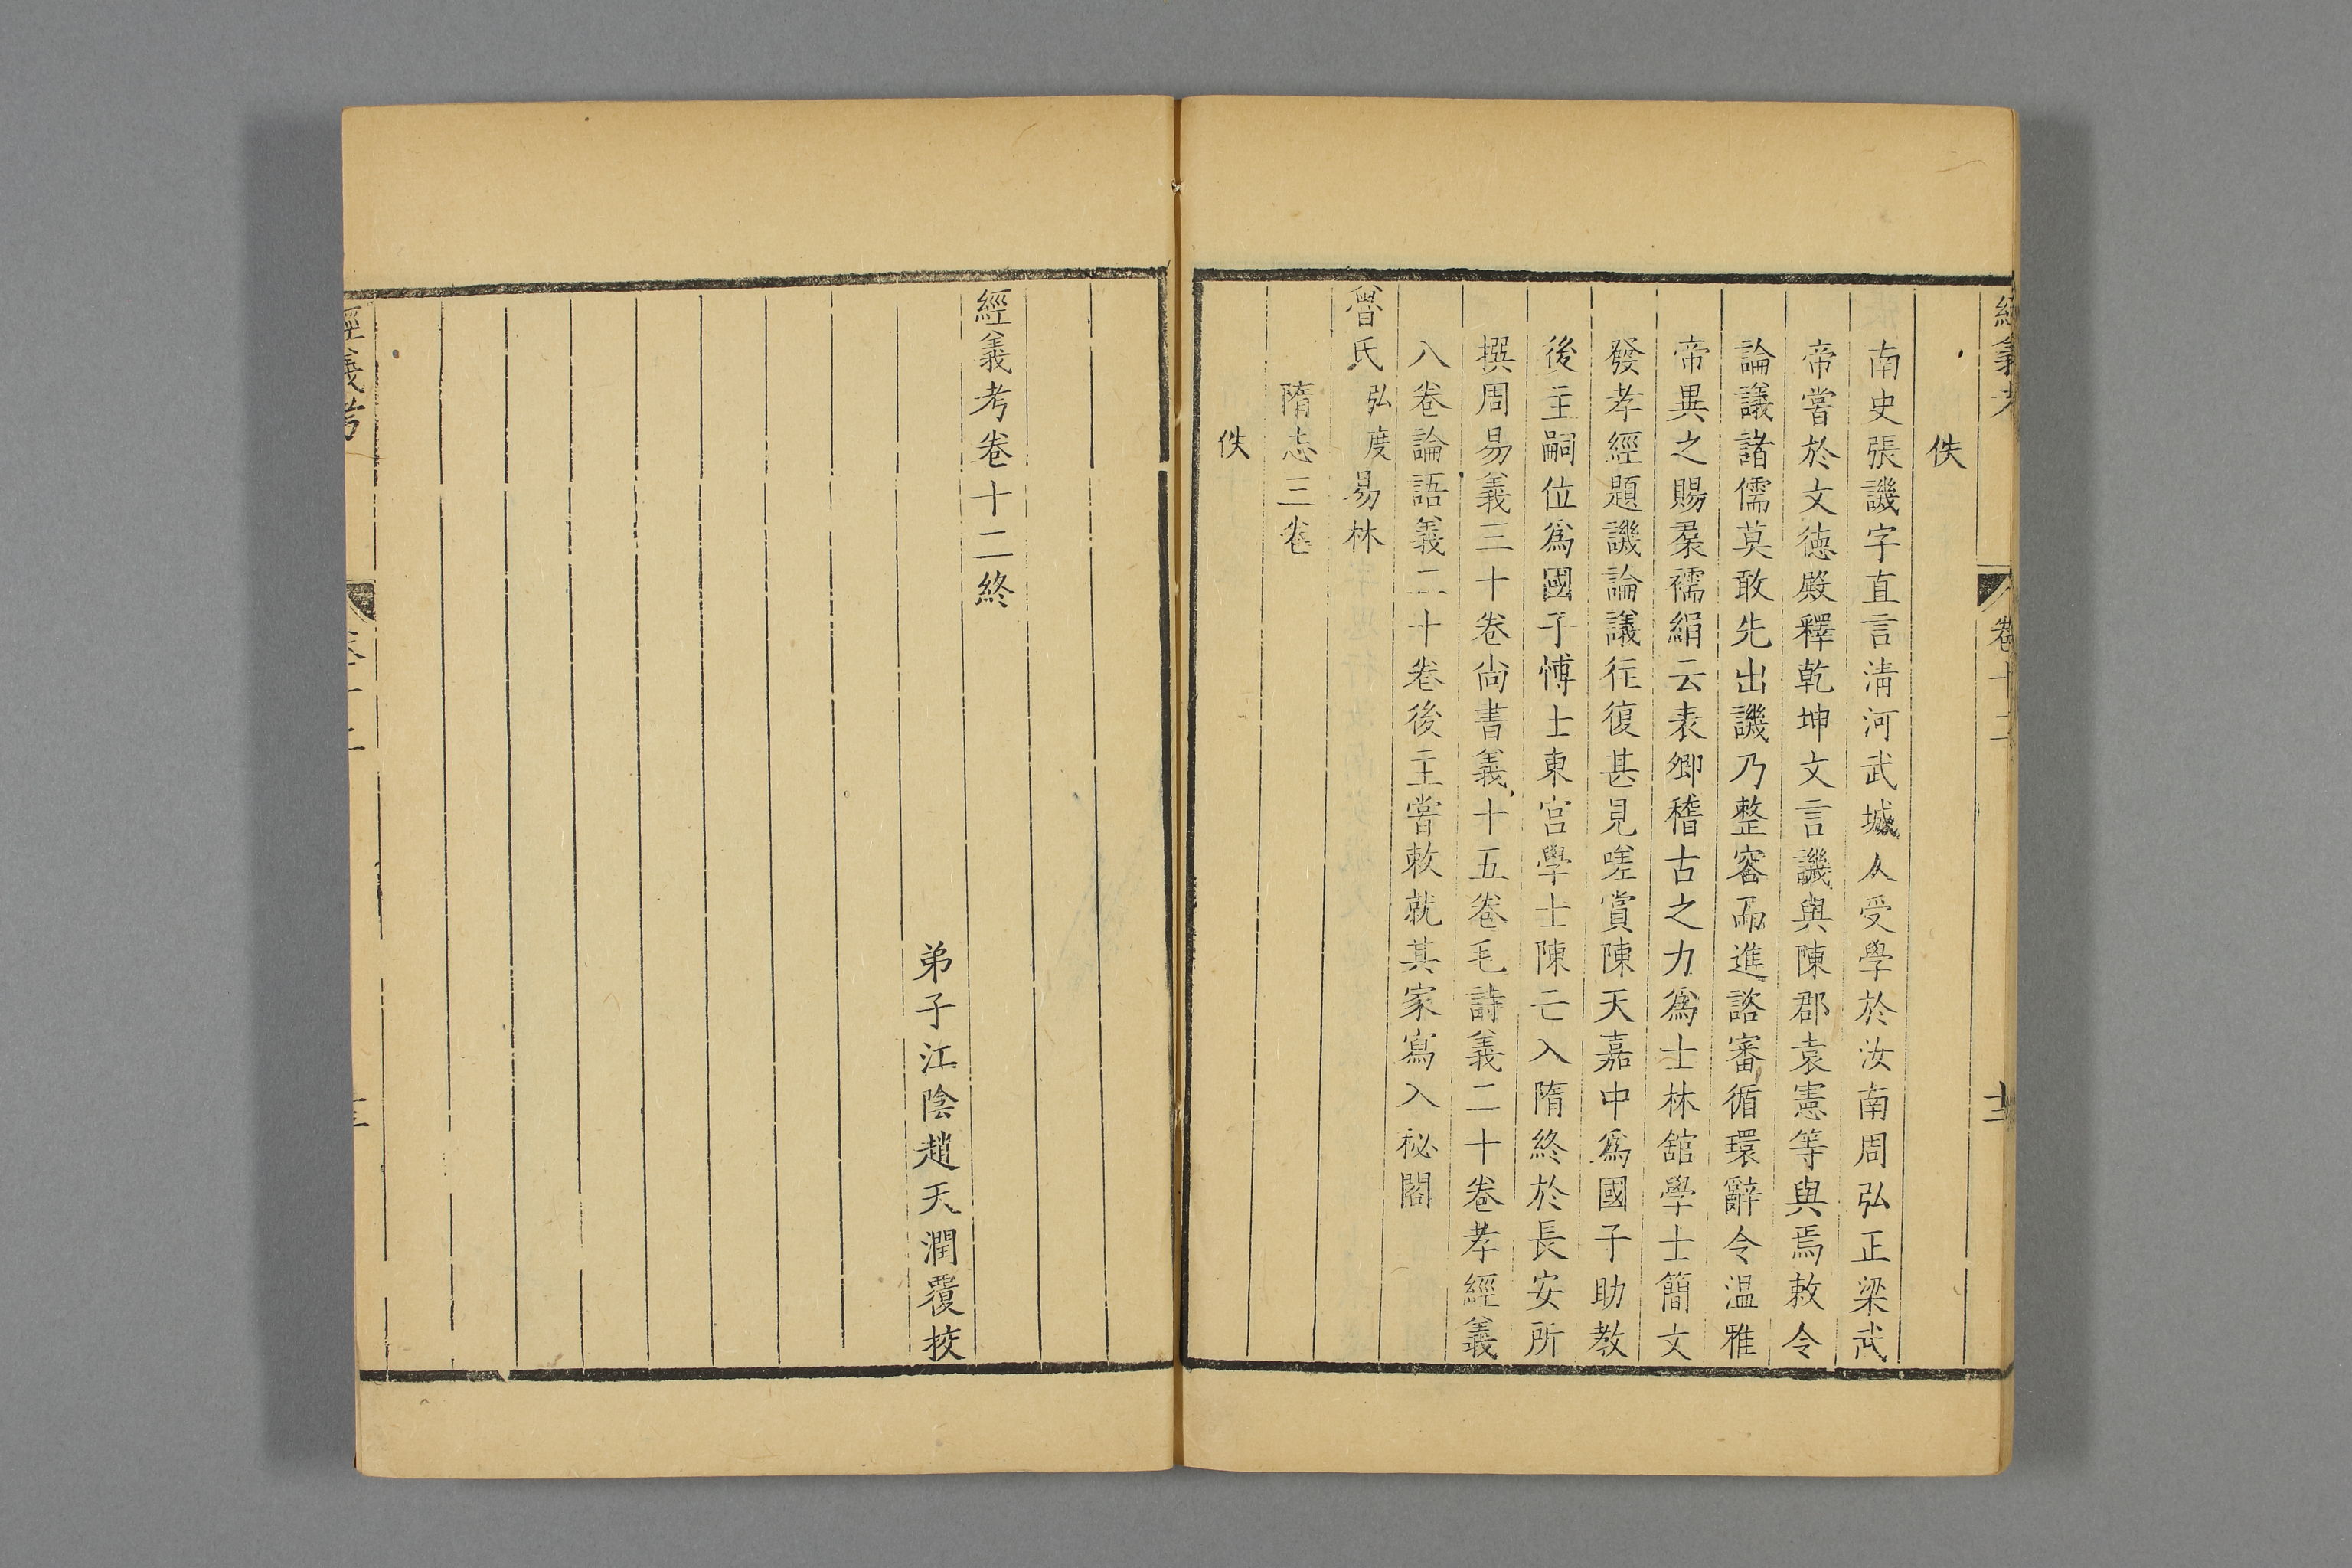 經義考
卷十二
佚
南史張譏字直言清河武城人受學於汝南周弘正梁武
帝嘗於文德殿釋乾坤文言譏與陳郡袁憲等與焉敕令
論議諸儒莫敢先出譏乃整容而進諮審循環辭令温雅
帝異之賜羣襦絹云表卿稽古之力爲士林舘學士簡文
發孝經題譏論議徃復甚見嗟賞陳天嘉中爲國子助教
後主嗣位爲國子博士東宫學士陳亡入隋終於長安所
撰周易義三十卷尚書義十五卷毛詩義二十卷孝經義
八卷論語義二十卷後主嘗敕就其家寫入秘閣
魯氏弘度易林
隋志三卷
佚
經義考卷十二終
弟子江陰趙天潤覆挍
經義考
卷十二